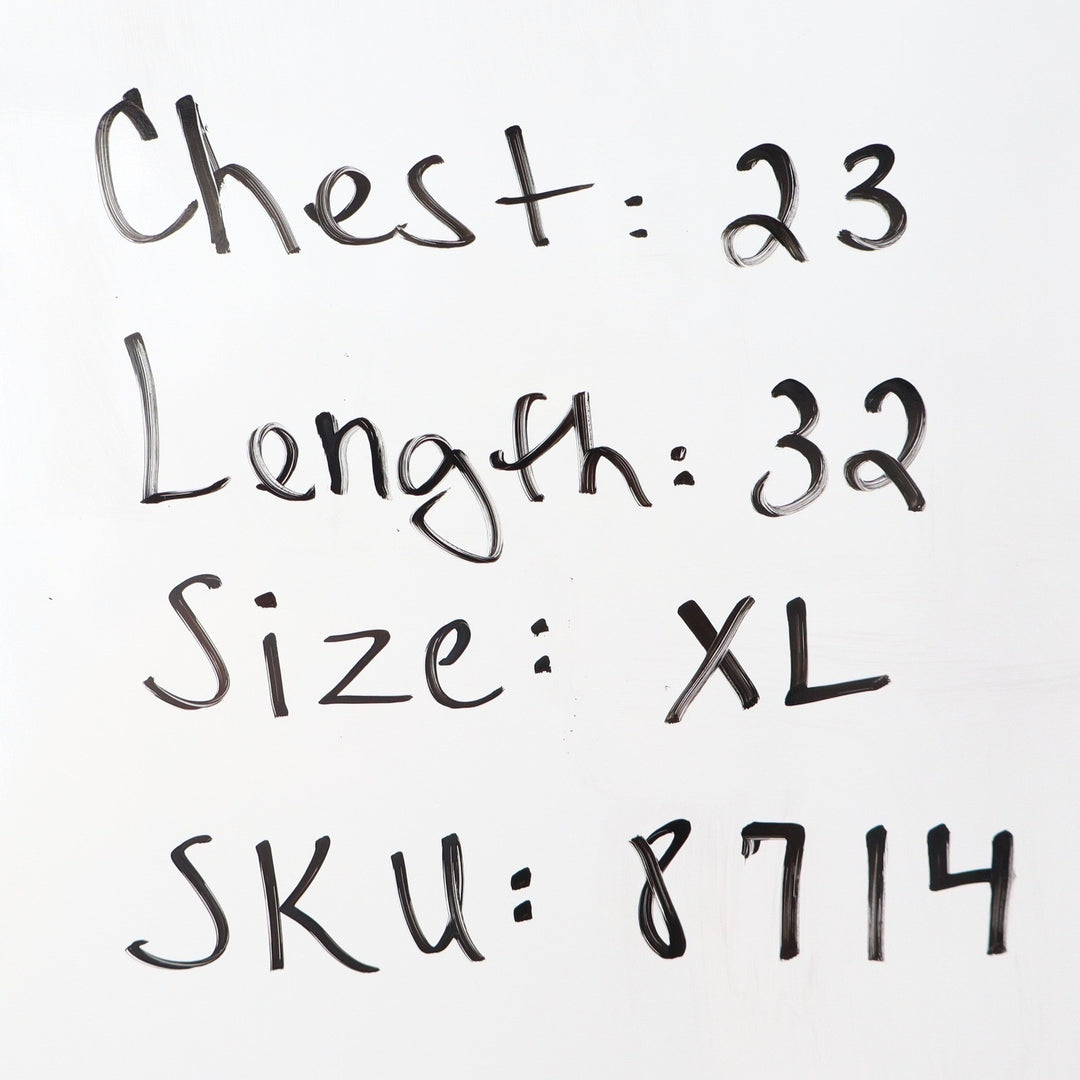 Chest: 23
Length: 32
Size: XL
SKU: 8714